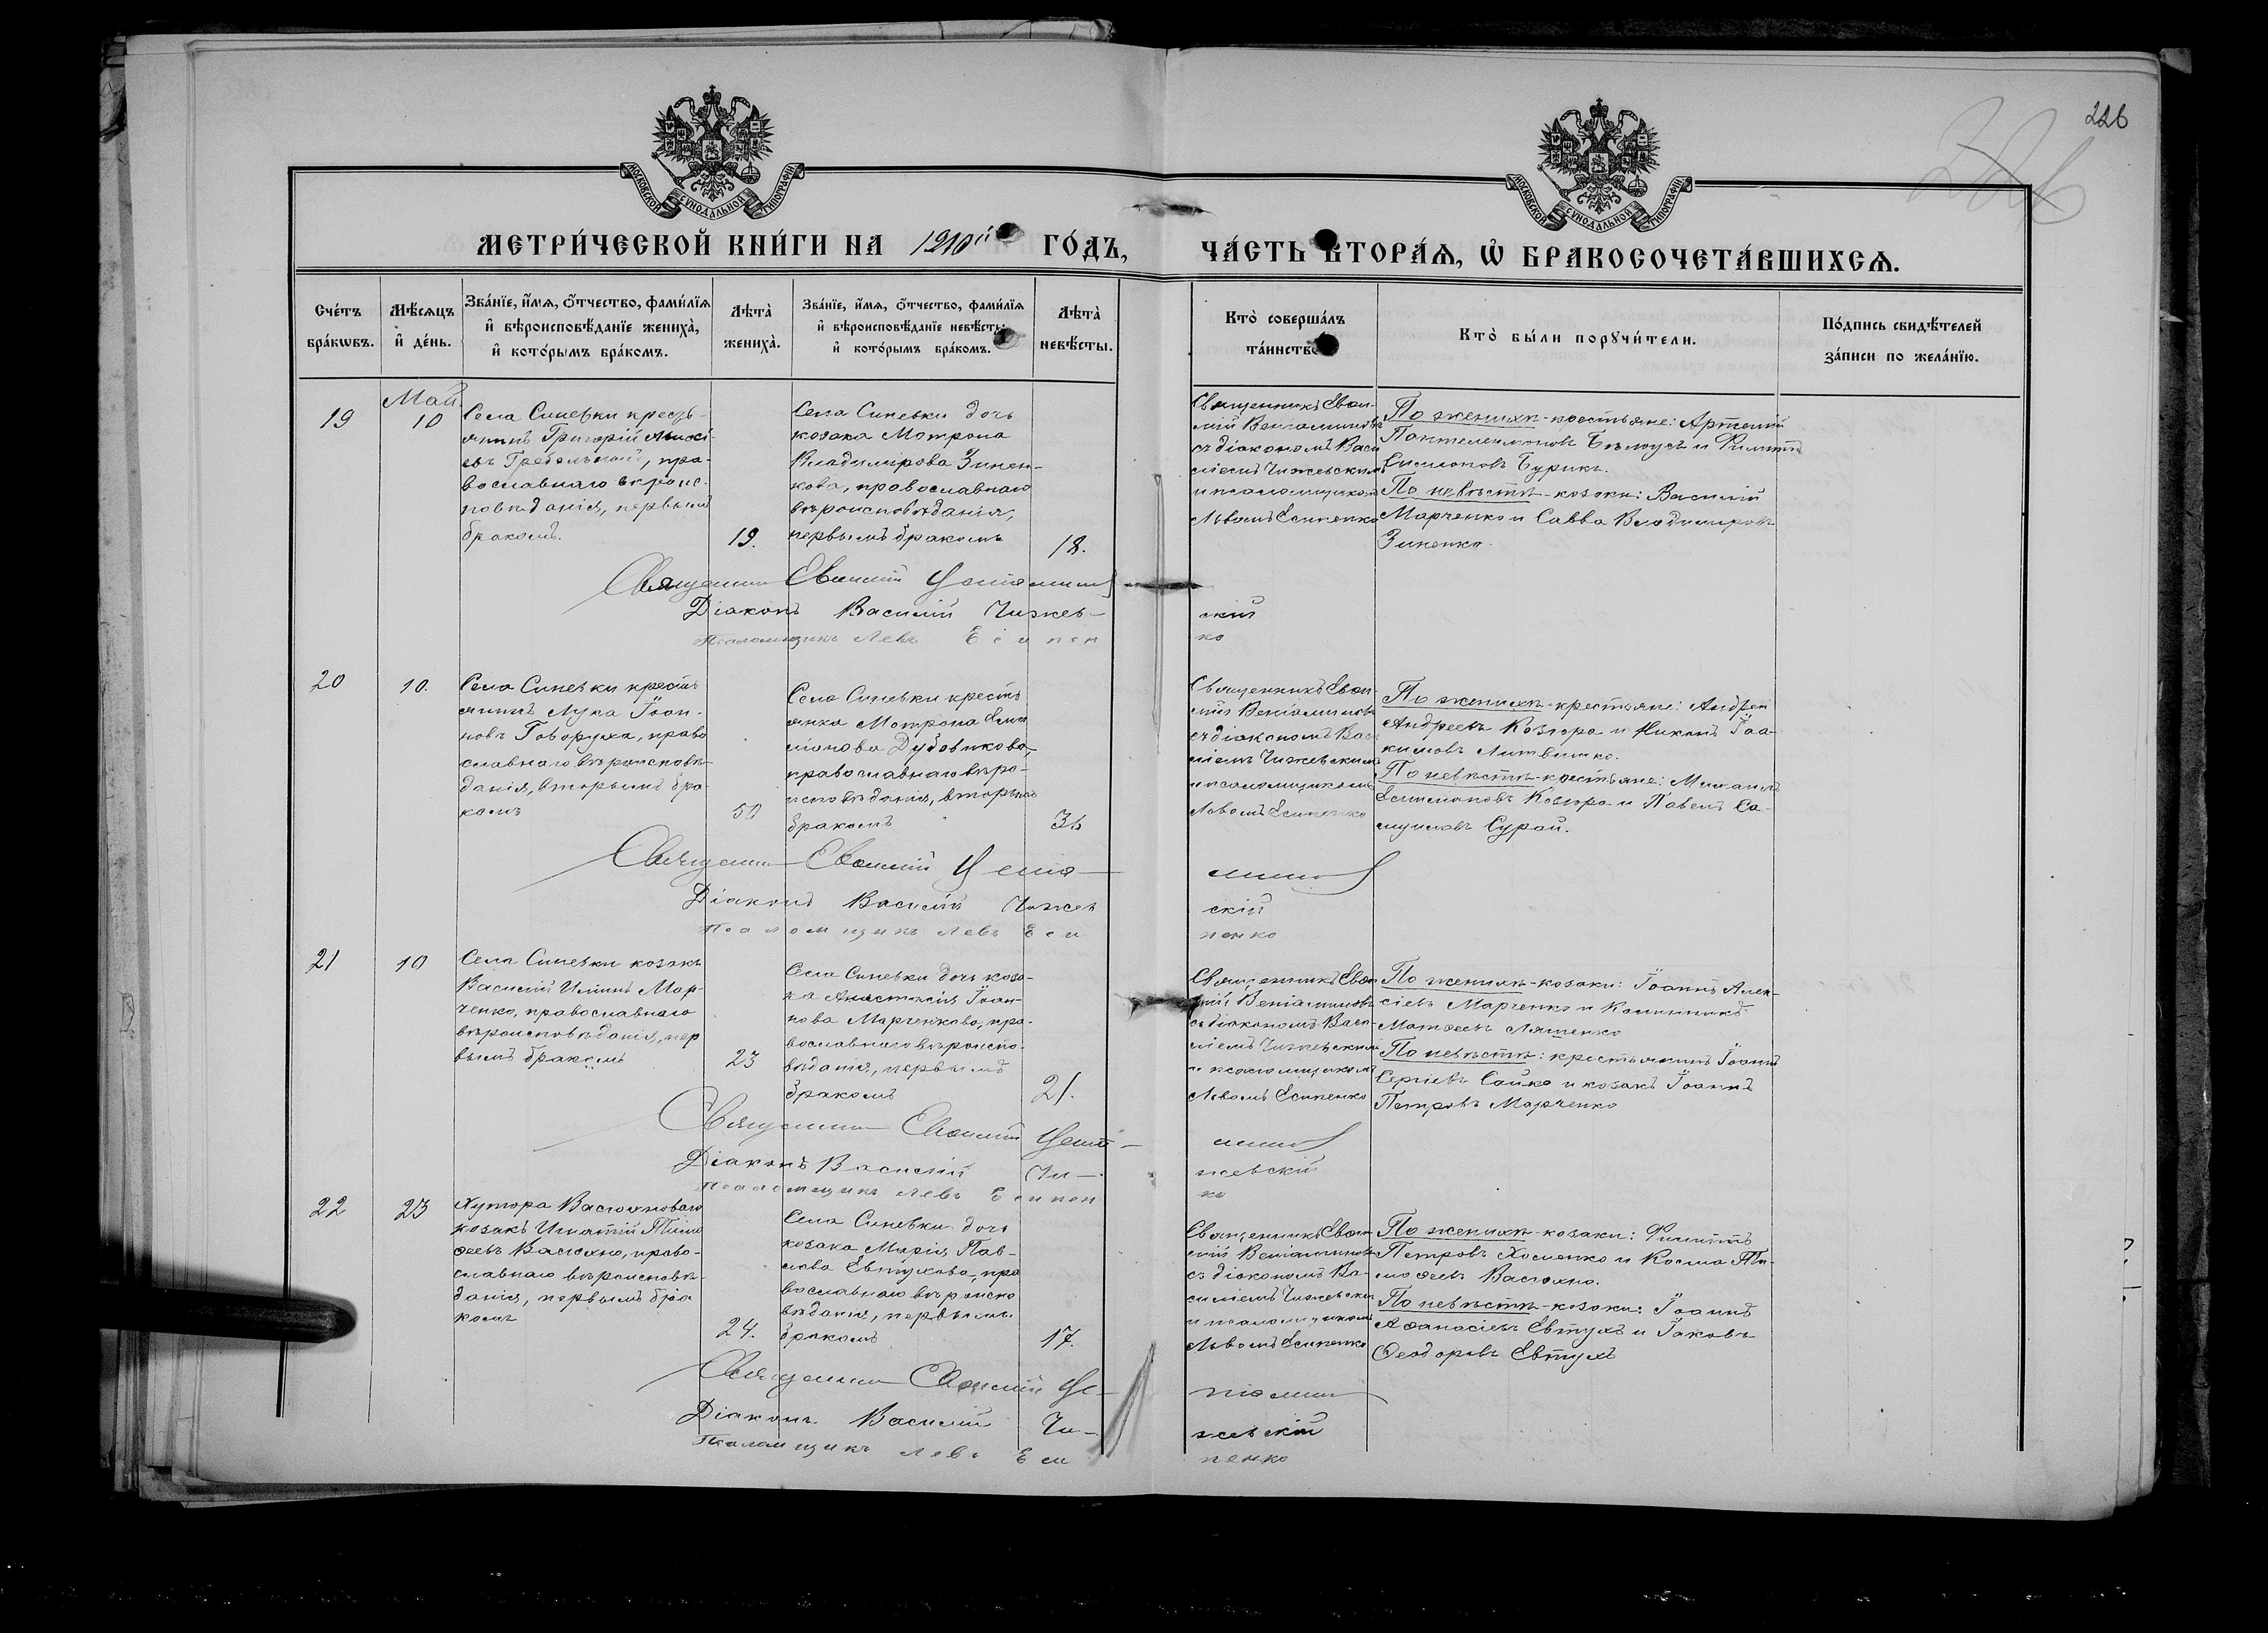 226
МОСКОВСКОЙ СУНОДАЛЬНОЙ ТИПОГРАФІИ
МОСКОВСКОЙ СУНОДАЛЬНОЙ ТИПОГРАФІИ
МЕТРИ́ЧЕСКОЙ КНИ́ГИ НА 1910й ГО́ДЪ,
ЧА́СТЬ ВТОРА́Ѧ, Ѽ БРАКОСОЧЕТА́ВШИХСѦ.
Сче́тъ бра́кѡвъ.
Мѣ́сѧцъ и҆ де́нь.
Зва́нїе, и҆́мѧ, ѻ҆́тчество, фами́лїѧ
и҆ вѣроисповѣ́данїе жениха̀,
и҆ кото́рымъ бра́комъ.
Лѣта̀ жениха̀.
Зва́нїе, и҆́мѧ, ѻ҆́тчество, фами́лїѧ
и҆ вѣроисповѣ́данїе невѣ́сты
и҆ кото́рымъ бра́комъ.
Лѣта̀ невѣ́сты.
Кто̀ соверша́лъ
та́инство
Кто̀ бы́ли порꙋчи́тели.
По́дпись свидѣ́телей
за́писи по жела́нїю.
Май
19
10
Села Синевки кресть-
янинъ Григорій
евъ Гребельный, пра-
вославнаго вѣроис-
повѣданія, первымъ
бракомъ.
19.
Села Синевки дочь
козака Мотрона
Владимірова Зинен-
кова, православнаго
вѣроисповѣданія,
первымъ бракомъ
18.
Священникъ Евѳи-
мій Веніаминовъ
съ діакономъ Васи
ліемъ Чижевскимъ
и псаломщикомъ
Львомъ Есипенко
По женихѣ-крестьяне: Артемій
Пантелеимоновъ и Филиппъ
Симоновъ Бурикъ.
По невѣстѣ-козаки: Василій
Марченко и Савва Владиміровъ
Зиненко.
Священникъ Евѳимій Веніаминовъ
Діаконъ Василій Чижев-
скій
Псаломщикъ Левъ Есипен
ко
20
10.
Села Синевки кресть
янинъ Лука Іоан-
новъ Говоруха, право
славнаго вѣроисповѣ-
данія, вторымъ бра
комъ
50
Села Синевки кресть
янка Мотрона
Дубовикова,
православнаго вѣро-
исповѣданія, вторымъ
бракомъ
36
Священникъ Евѳи-
мій Веніаминовъ
съ діакономъ Васи
ліемъ Чижевскимъ
и псаломщикомъ
Львомъ Есипенко
По женихѣ-крестьяне: Андрей
Андреевъ Козюра и Никонъ Іоа-
кимовъ Литвинко.
По невѣстѣ-крестьяне: Михаилъ
Козюра и Павелъ Са-
муиловъ Сурай.
Священникъ Евѳимій Веніа-
миновъ
Діаконъ Василій Чижев
скій
Псаломщикъ Левъ Еси
пенко
21
10
Села Синевки козакъ
Василій Илiинъ Мар-
ченко, православнаго
вѣроисповѣданія, пер
вымъ бракомъ
23
Села Синевки дочь коза-
ка Анастасія Іоан-
нова Марченкова, пра-
вославнаго вѣроиспо-
вѣданія, первымъ
бракомъ
21.
Священникъ Евѳи
мій Веніаминовъ
съ діакономъ Васи-
ліемъ Чижевскимъ
и псаломщикомъ
Львомъ Есипенко
По женихѣ-козаки: Іоаннъ Алек-
сіевъ Марченко и Каллиникъ
Матѳеевъ Ляшенко
По невѣстѣ: крестьянинъ Іоаннъ
Сергіевъ Сайко и козакъ Іоаннъ
Петровъ Марченко
Священникъ Евѳимій Веніа-
миновъ
Діаконъ Василій Чи-
жевскій
Псаломщикъ Левъ Есипен
ко
22
23
Хутора Васюхноваго
козакъ Игнатій Тимо
ѳеевъ Васюхно, право-
славнаго вѣроисповѣ-
данія, первымъ бра
комъ
24.
Села Синевки дочь
козака Марія Пав-
лова Евтухова, пра
вославнаго вѣроиспо
вѣданія, первымъ
бракомъ
17.
Священникъ Евѳи-
мій Веніаминовъ
съ діакономъ Ва-
силіемъ Чижевским
и псаломщикомъ
Львомъ Есипенко
По женихѣ-козаки: Филиппъ
Петровъ Хоменко и Косма Ти-
моѳеевъ Васюхно.
По невѣстѣ-козаки: Іоаннъ
Аѳанасіевъ Евтухъ и Іаковъ
Ѳеодоровъ Евтухъ
Священникъ Евѳимій Ве-
ніаминовъ
Діаконъ Василій Чи-
жевскій
Псаломщикъ Левъ Еси
пенко